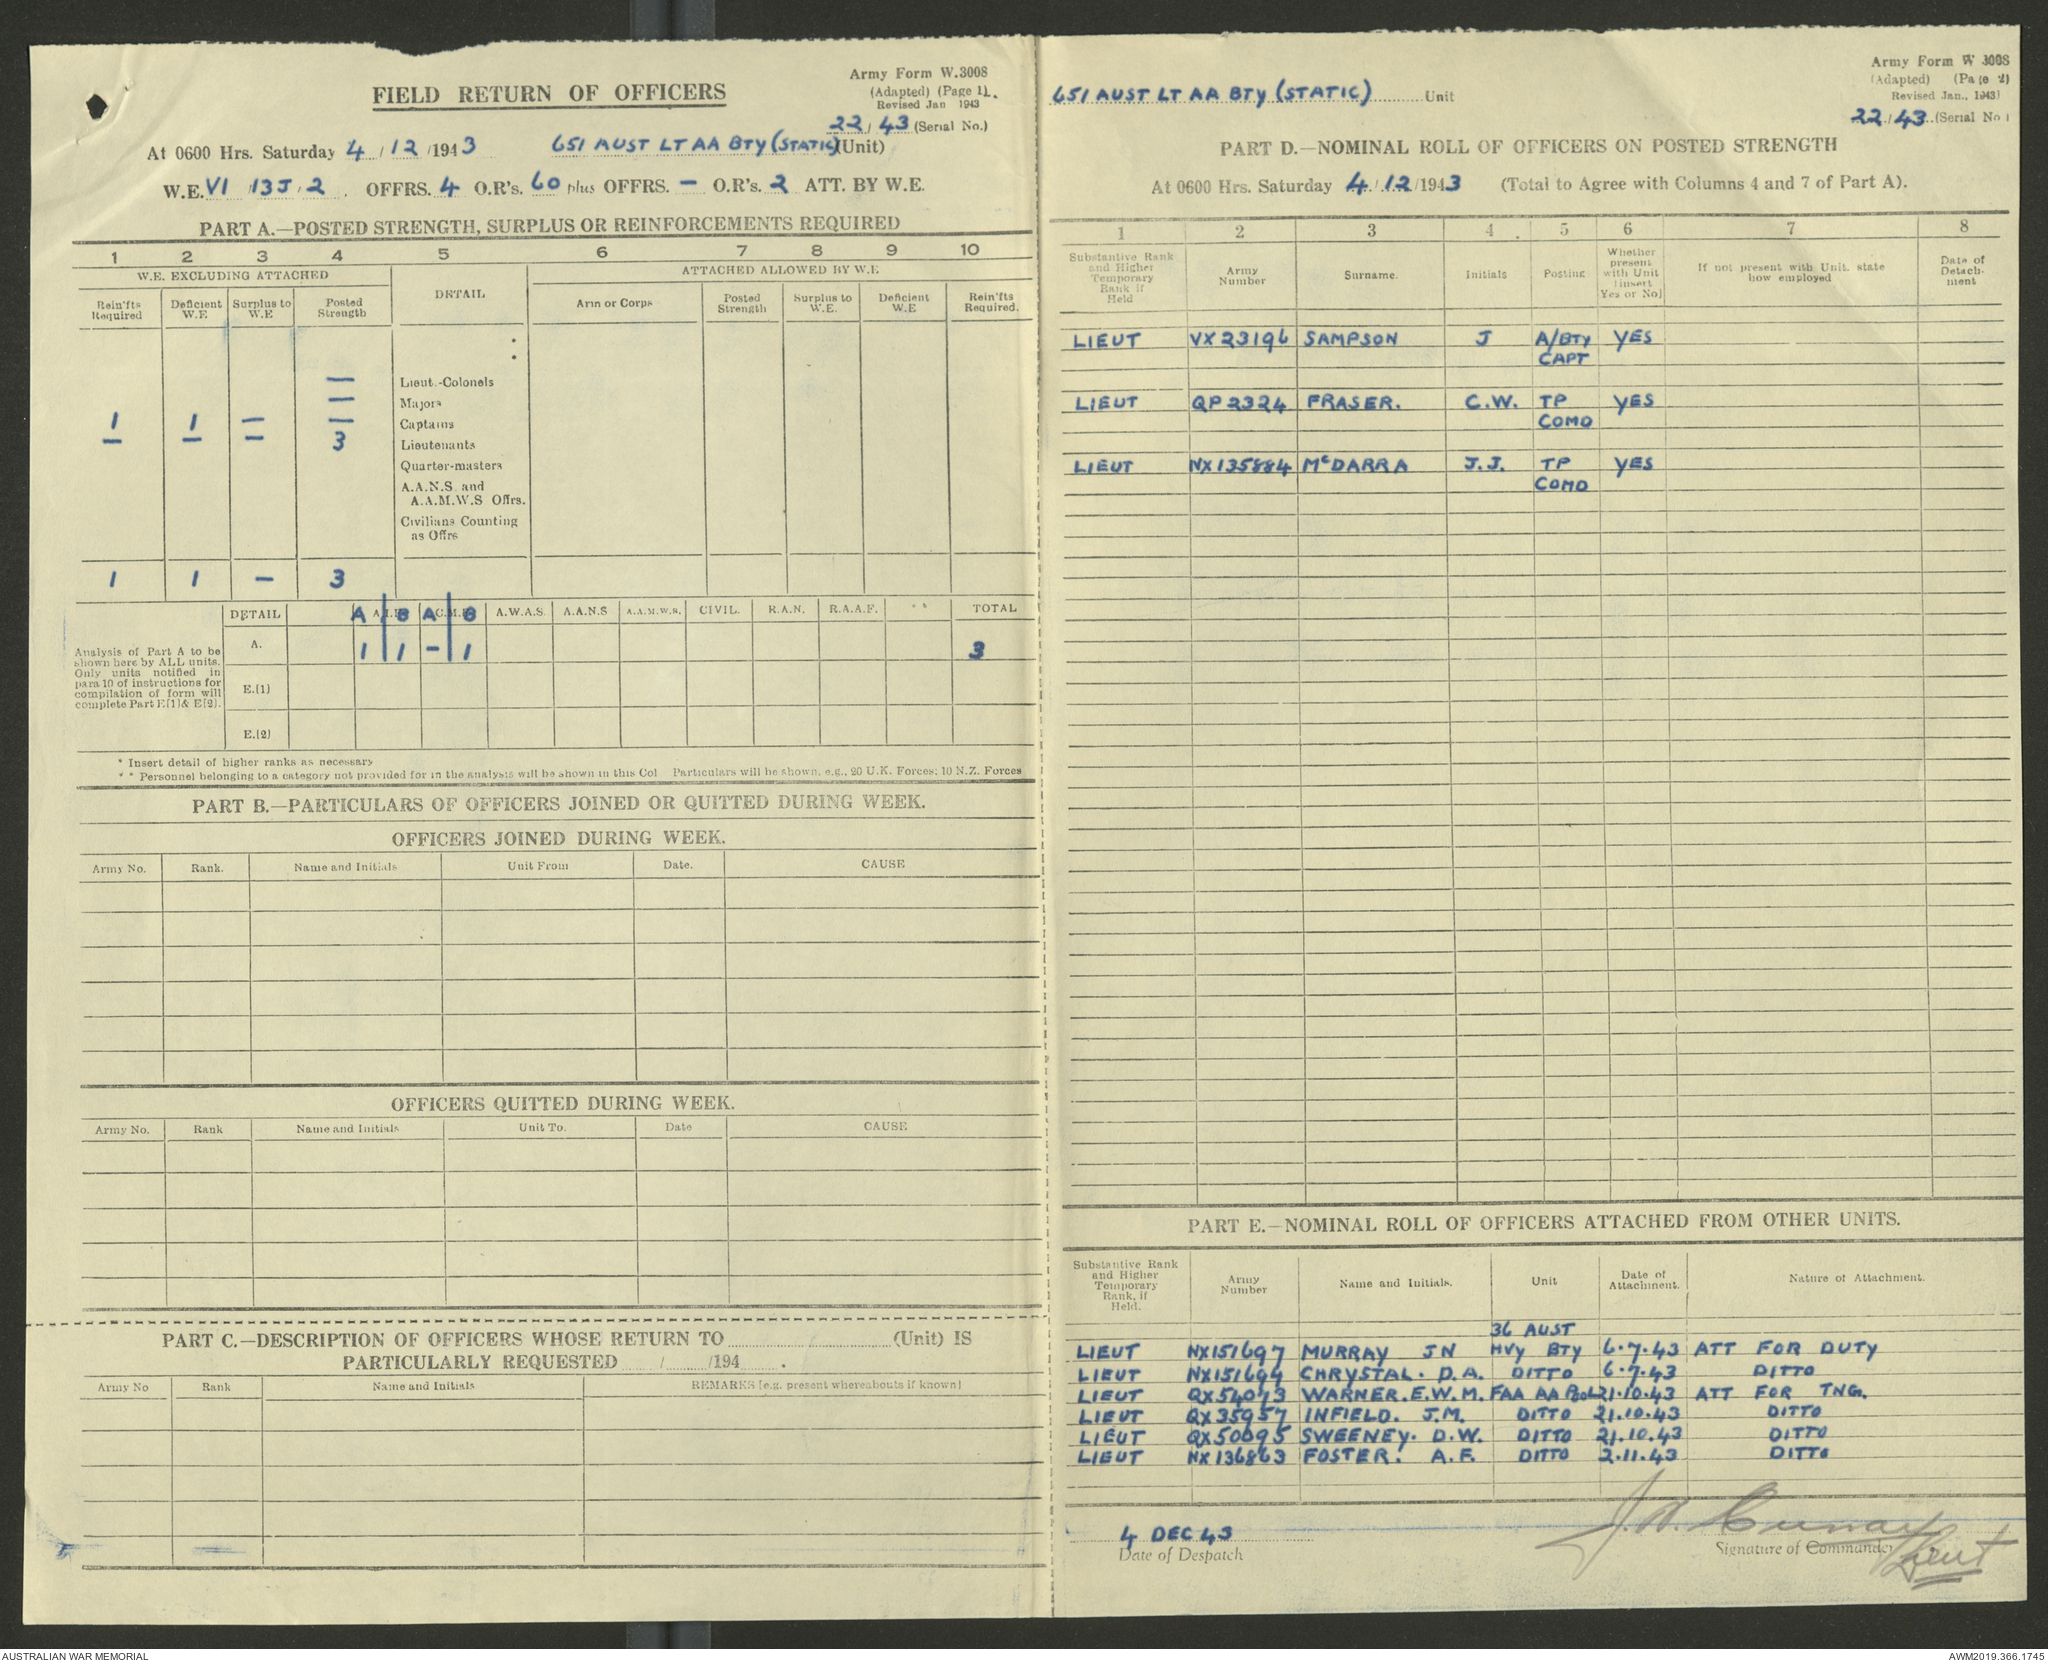 Army Form W.3008
(Adapted) (Page 1).
Revised Jan 1943
FIELD RETURN OF OFFICERS
22/43 (Serial No.)
At 0600 Hrs. Saturday 4/12/1943 651 AUST LT AA BTY (STATIC) (Unit)
W.E. VI /13J/2. OFFRS. 4 O.R's. 60 plus OFFRS. — O.R's. 2 ATT. BY W.E.
PART A.—POSTED STRENGTH, SURPLUS OR REINFORCEMENTS REQUIRED
1 2 3 4 5 6 7 8 9 10
W.E. EXCLUDING ATTACHED DETAIL ATTACHED ALLOWED BY W.E
Rein'fts Required Deficient W.E Surplus to W.E Posted Strength Arm or Corps Posted Strength Surplus to W.E. Deficient W.E Rein'fts Required.
— Lieut.-Colonels
— Majors
1 1 — — Captains
— — — 3 Lieutenants
Quarter-masters
A.A.N.S. and
A.A.M.W.S Offrs.
Civilians Counting
as Offrs
1 1 — 3
DETAIL A A.I.F. B A C.M.F. B A.W.A.S. A.A.N.S A.A.M.W.S. CIVIL. R.A.N. R.A.A.F. ** TOTAL
A. 1 1 — 1 3
E.(1)
E.(2)
Analysis of Part A to be
shown here by ALL units.
Only units notified in
para 10 of instructions for
compilation of form will
complete Part E[1]& E[2].
* Insert detail of higher ranks as necessary
** Personnel belonging to a category not provided for in the analysis will be shown in this Col Particulars will be shown, e.g., 20 U.K. Forces; 10 N.Z. Forces
PART B.—PARTICULARS OF OFFICERS JOINED OR QUITTED DURING WEEK.
OFFICERS JOINED DURING WEEK.
Army No. Rank. Name and Initials Unit From Date. CAUSE
OFFICERS QUITTED DURING WEEK.
Army No. Rank Name and Initials Unit To. Date CAUSE
PART C.—DESCRIPTION OF OFFICERS WHOSE RETURN TO (Unit) IS
PARTICULARLY REQUESTED / /194 .
Army No Rank Name and Initials REMARKS [e.g. present whereabouts if known]
Army Form W 3008
(Adapted) (Page 2)
Revised Jan., 1943)
651 AUST LT AA BTY (STATIC) Unit
22/43 (Serial No)
PART D.—NOMINAL ROLL OF OFFICERS ON POSTED STRENGTH
At 0600 Hrs. Saturday 4/12/1943 (Total to Agree with Columns 4 and 7 of Part A).
1 2 3 4 5 6 7 8
Substantive Rank and Higher Temporary Rank if Held Army Number Surname. Initials Posting Whether present with Unit (insert Yes or No) If not present with Unit. state how employed Date of Detach-ment
LIEUT VX23196 SAMPSON J A/BTY YES
CAPT
LIEUT QP2324 FRASER. C.W. TP YES
COMD
LIEUT NX135884 McDARRA J.J. TP YES
COMD
PART E.—NOMINAL ROLL OF OFFICERS ATTACHED FROM OTHER UNITS.
Substantive Rank and Higher Temporary Rank, if Held. Army Number Name and Initials. Unit Date of Attachment. Nature of Attachment.
36 AUST
LIEUT NX151697 MURRAY JN HVY BTY 6.7.43 ATT FOR DUTY
LIEUT NX151694 CHRYSTAL. D.A. DITTO 6.7.43 DITTO
LIEUT QX54073 WARNER. E.W.M. FAA AA POOL 21.10.43 ATT FOR TNG.
LIEUT QX35957 INFIELD. J.M. DITTO 21.10.43 DITTO
LIEUT QX50095 SWEENEY. D.W. DITTO 21.10.43 DITTO
LIEUT NX136863 FOSTER. A.F. DITTO 2.11.43 DITTO
4 DEC 43
Date of Despatch
Signature of Commander
Lieut
AUSTRALIAN WAR MEMORIAL
AWM2019.366.1745